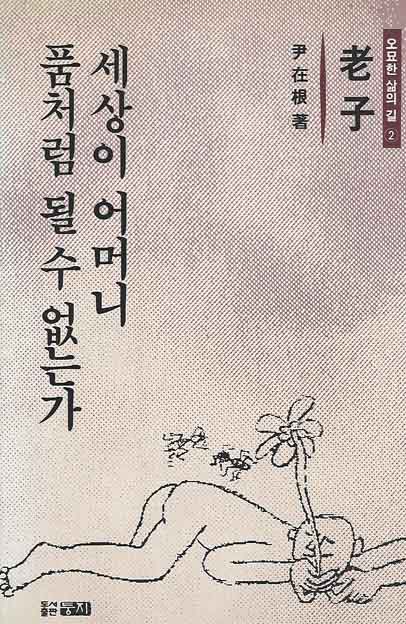 오묘한 삶의 길 2
老子
尹在根 著
세상이 어머니
품처럼 될 수 없는가
도서출판 둥지